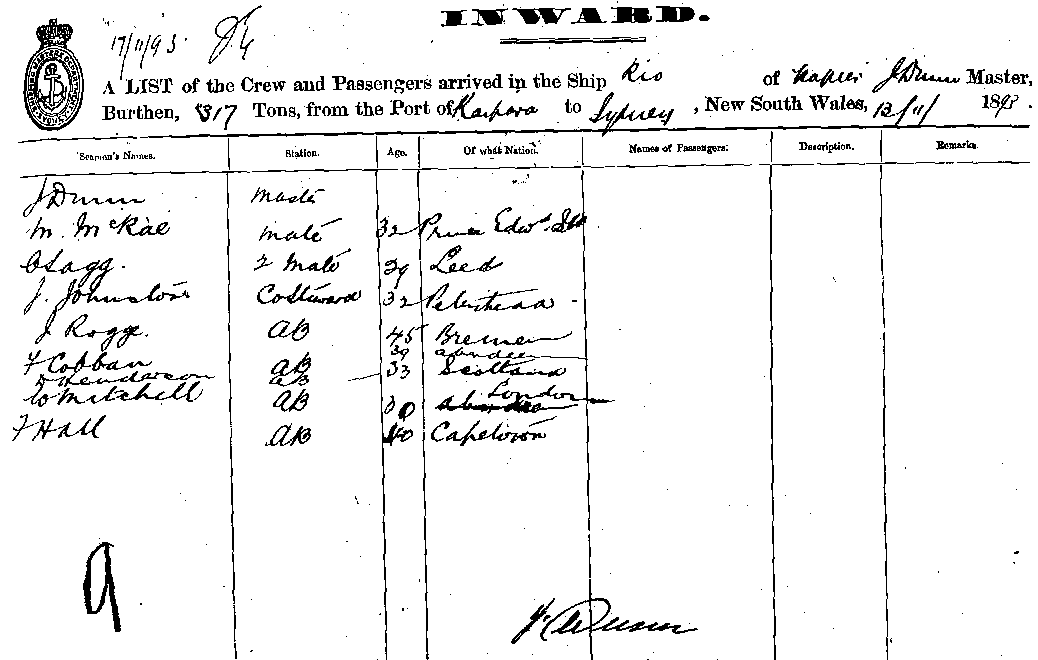 INWARD.
17/11/93
A LIST of the Crew and Passengers arrived in the Ship Rio of Napier J Dunn Master,
Burthen, 317 Tons, from the Port of Kaipara to Sydney, New South Wales, 13/11/ 189
Seaman's Names. Station. Age. Of what Nation. Names of Passengers: Description. Remarks.
J Dunn Master
M. McRae Mate 32 Prince Edwd Isd
C Lagg. 2 Mate 29 Leed
J. Johnston Co Steward 32
J Rogge. AB 45 Bremen
F Cobban AB 39 Aberdeen
Henderson AB 33 Scotland
W Mitchell AB 30 London
F Hall AB 40 Capetown
9
J. Dunn